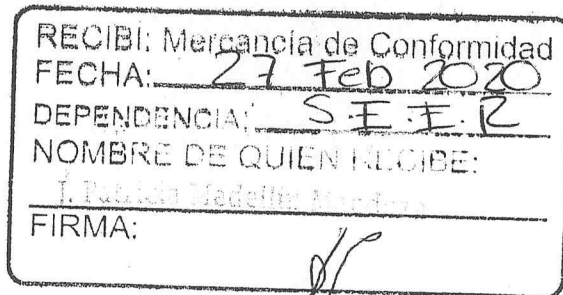 RECIBÍ: Mercancía de Conformidad
FECHA: 27 Feb 2020
DEPENDENCIA: S.E.E.R
NOMBRE DE QUIEN RECIBE:
J. Patricia Medellín
FIRMA: